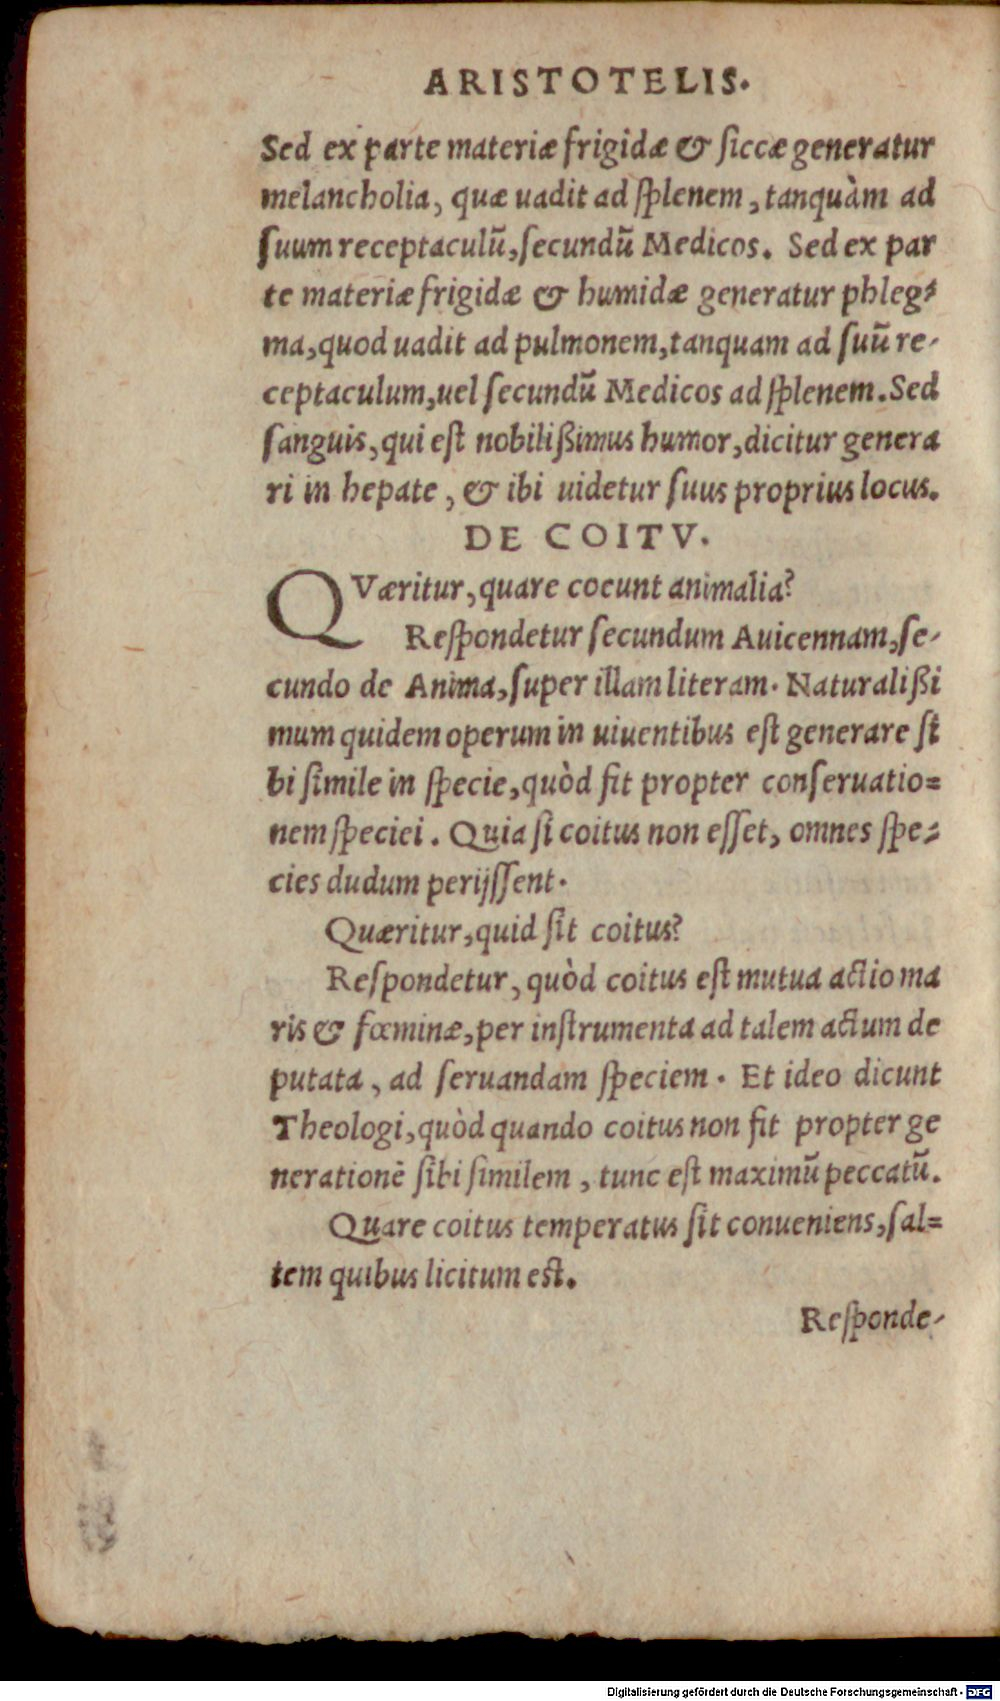 ARISTOTELIS.
Sed ex parte materiæ frigidæ & ſiccæ generatur
melancholia, quæ uadit ad ſplenem, tanquàm ad
ſuum receptaculũ, ſecundũ Medicos. Sed ex par
te materiæ frigidæ & humidæ generatur phleg⸗
ma, quod uadit ad pulmonem, tanquam ad ſuũ re-
ceptaculum, uel ſecundũ Medicos ad ſplenem. Sed
ſanguis, qui eſt nobilißimus humor, dicitur genera
ri in hepate, & ibi uidetur ſuus proprius locus.
DE COITV.
QVæritur, quare coeunt animalia?
Reſpondetur ſecundum Auicennam, ſe-
cundo de Anima, ſuper illam literam. Naturalißi
mum quidem operum in uiuentibus eſt generare ſi
bi ſimile in ſpecie, quòd fit propter conſeruatio=
nem ſpeciei. Quia ſi coitus non eſſet, omnes ſpe⸗
cies dudum perijſſent.
Quæritur, quid ſit coitus?
Reſpondetur, quòd coitus eſt mutua actio ma
ris & fœminæ, per inſtrumenta ad talem actum de
putata, ad ſeruandam ſpeciem. Et ideo dicunt
Theologi, quòd quando coitus non fit propter ge
nerationẽ ſibi ſimilem, tunc eſt maximũ peccatũ.
Quare coitus temperatus ſit conueniens, ſal=
tem quibus licitum eſt.
Reſponde-
Digitalisierung gefördert durch die Deutsche Forschungsgemeinschaft - DFG